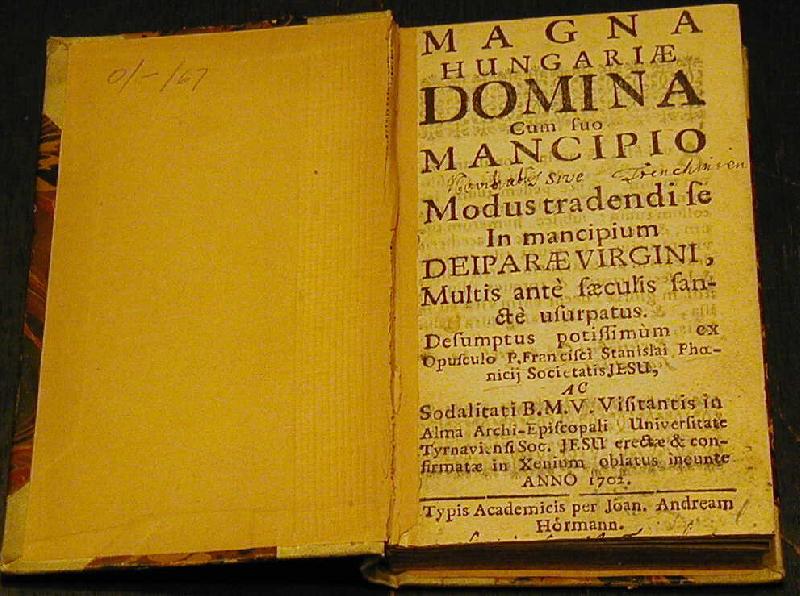 0/-/67
MAGNA
HUNGARIÆ
DOMINA
Cum ſuo
MANCIPIO
Sive
Modus tradendi ſe
In mancipium
DEIPARÆ VIRGINI,
Multis antè ſæculis ſan-
ctè uſurpatus.
Deſumptus potiſſimùm ex
Opuſculo P. Franciſci Stanislai Phœ-
nicij Societatis JESU,
AC
Sodalitati B. M. V. Viſitantis in
Alma Archi-Epiſcopali Univerſitate
Tyrnavienſi Soc. JESU erectæ & con-
firmatæ in Xenium oblatus ineunte
ANNO 1702.
Typis Academicis per Joan. Andream
Hörmann.